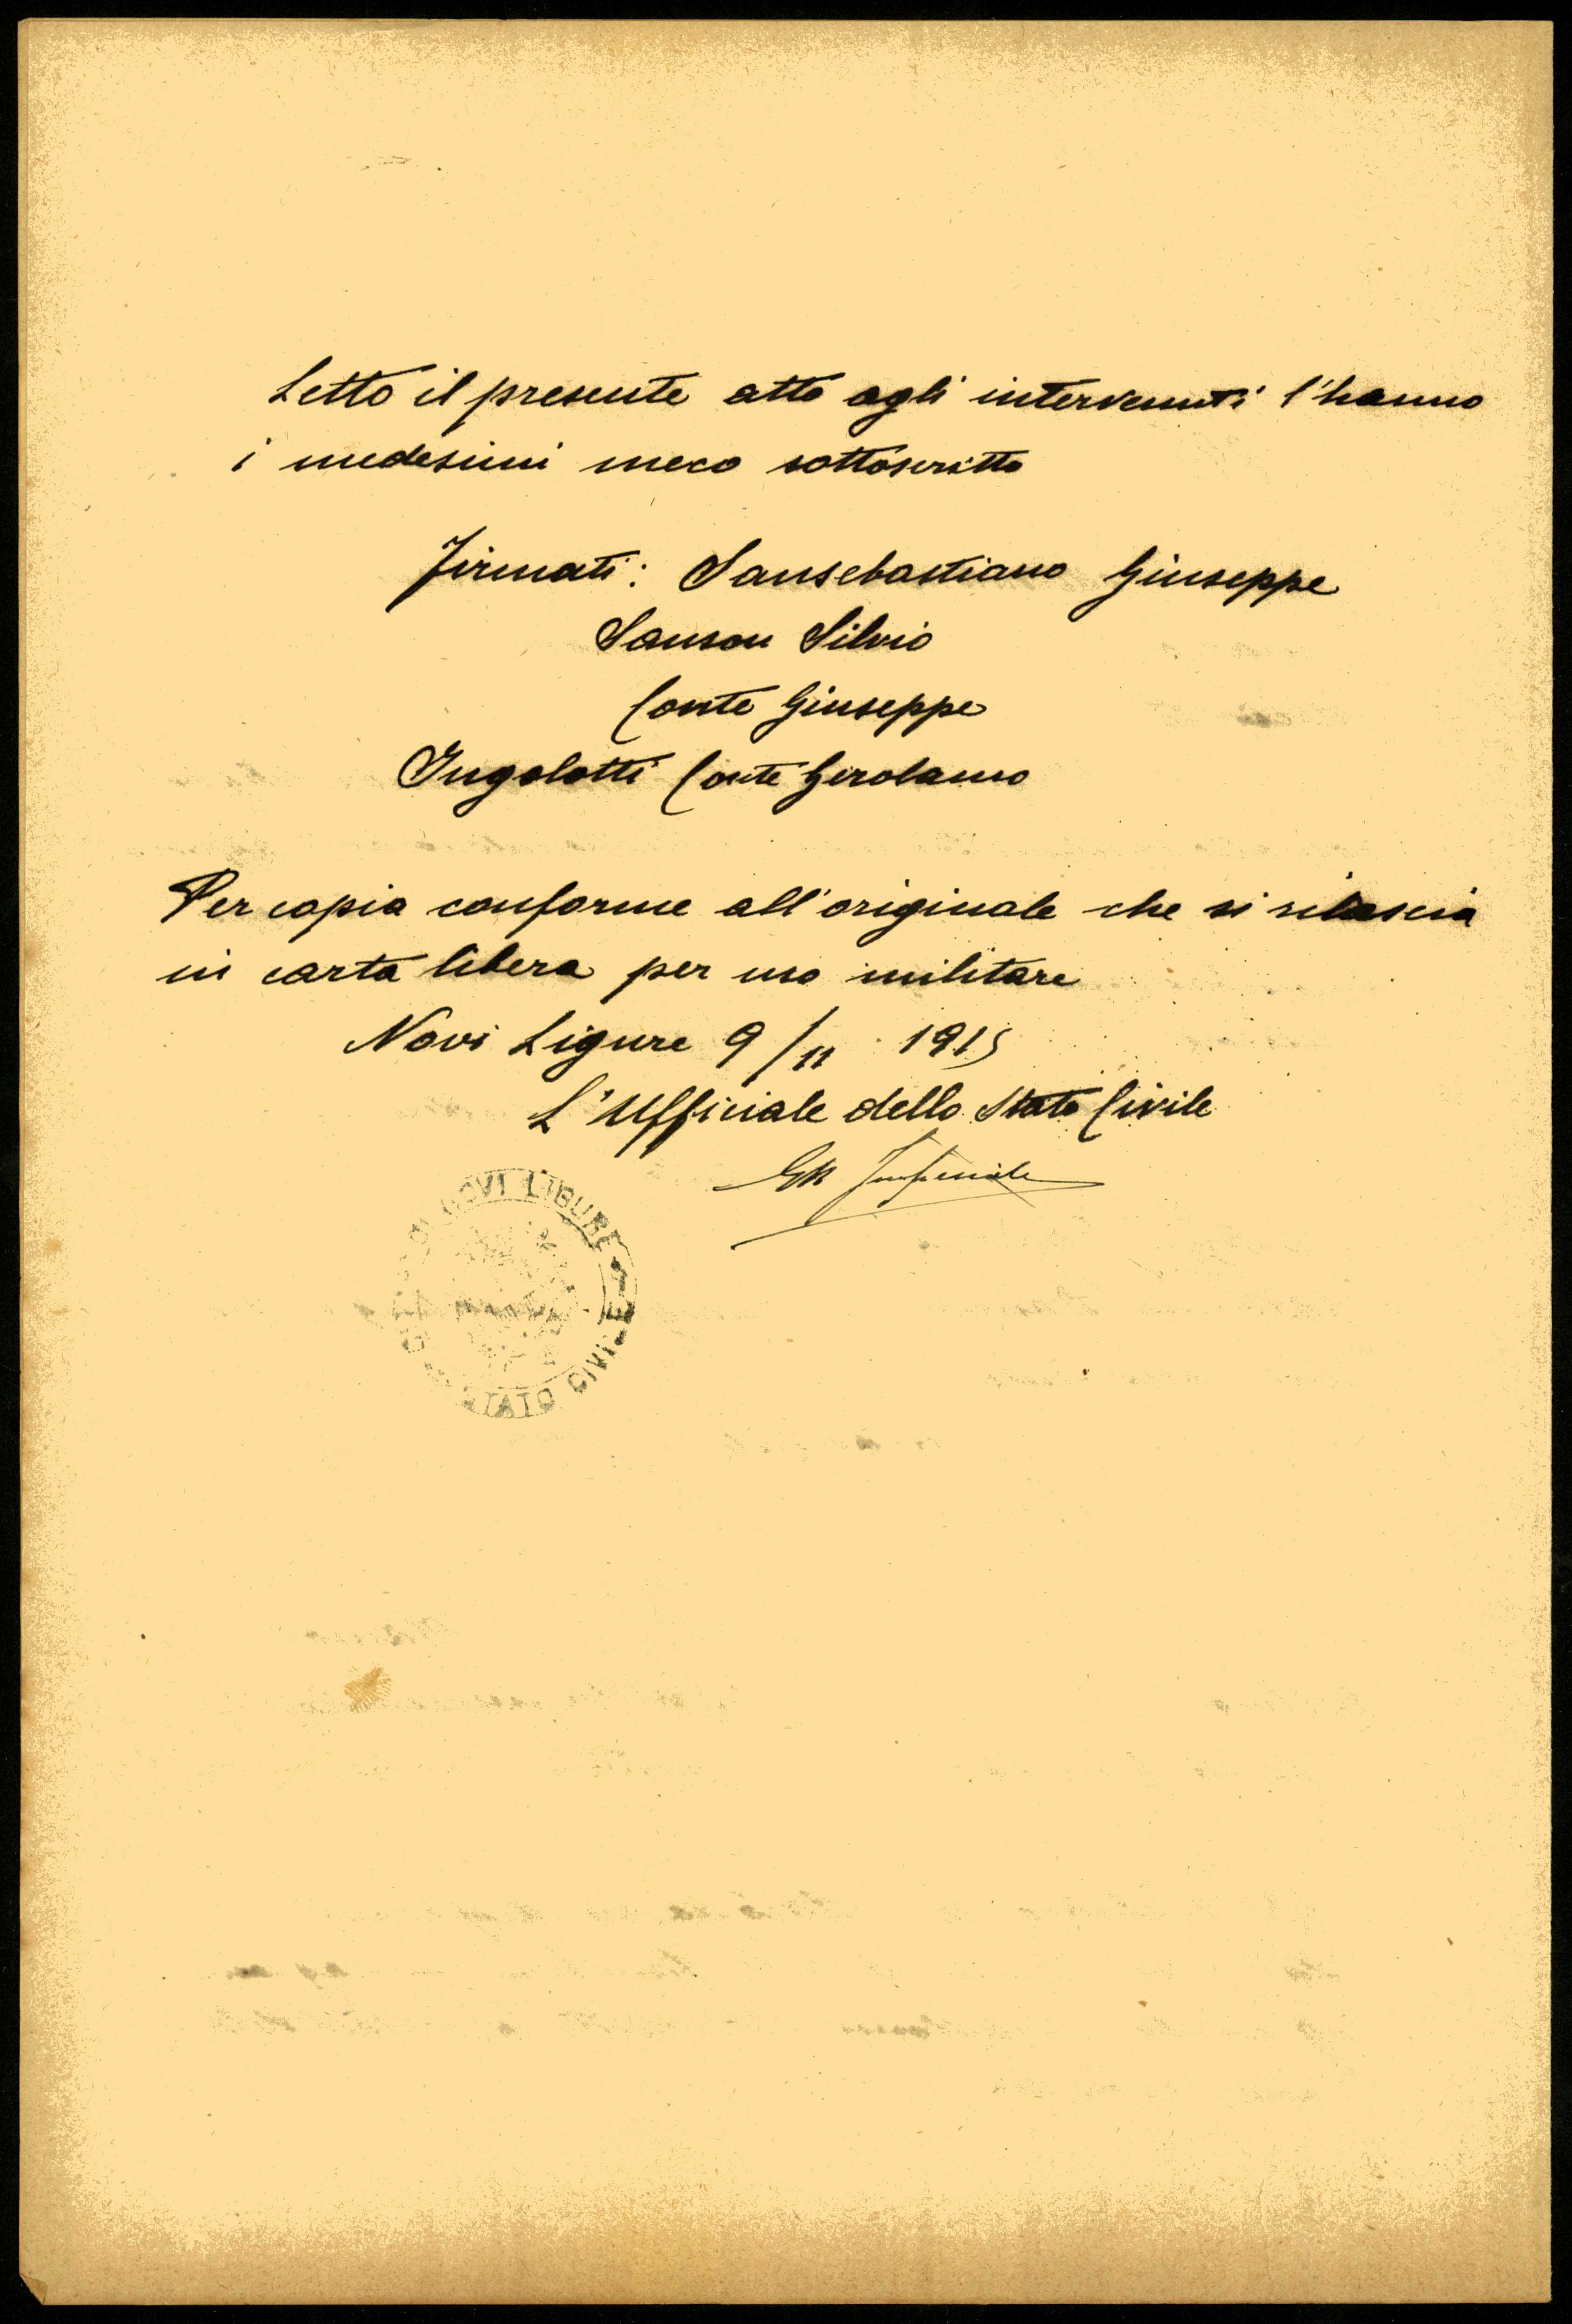 Letto il presente atto agli intervenuti l'hanno
i medesimi meco sottoscritto
Firmati: Sansebastiano Giuseppe
Sanson Silvio
Conte Giuseppe
Ingolotti Conte Girolamo
Per copia conforme all'originale che si rilascia
in carta libera per uso militare
Novi Ligure 9/11 1915
L'Ufficiale dello Stato Civile
DI NOVI LIGURE
STATO CIVILE